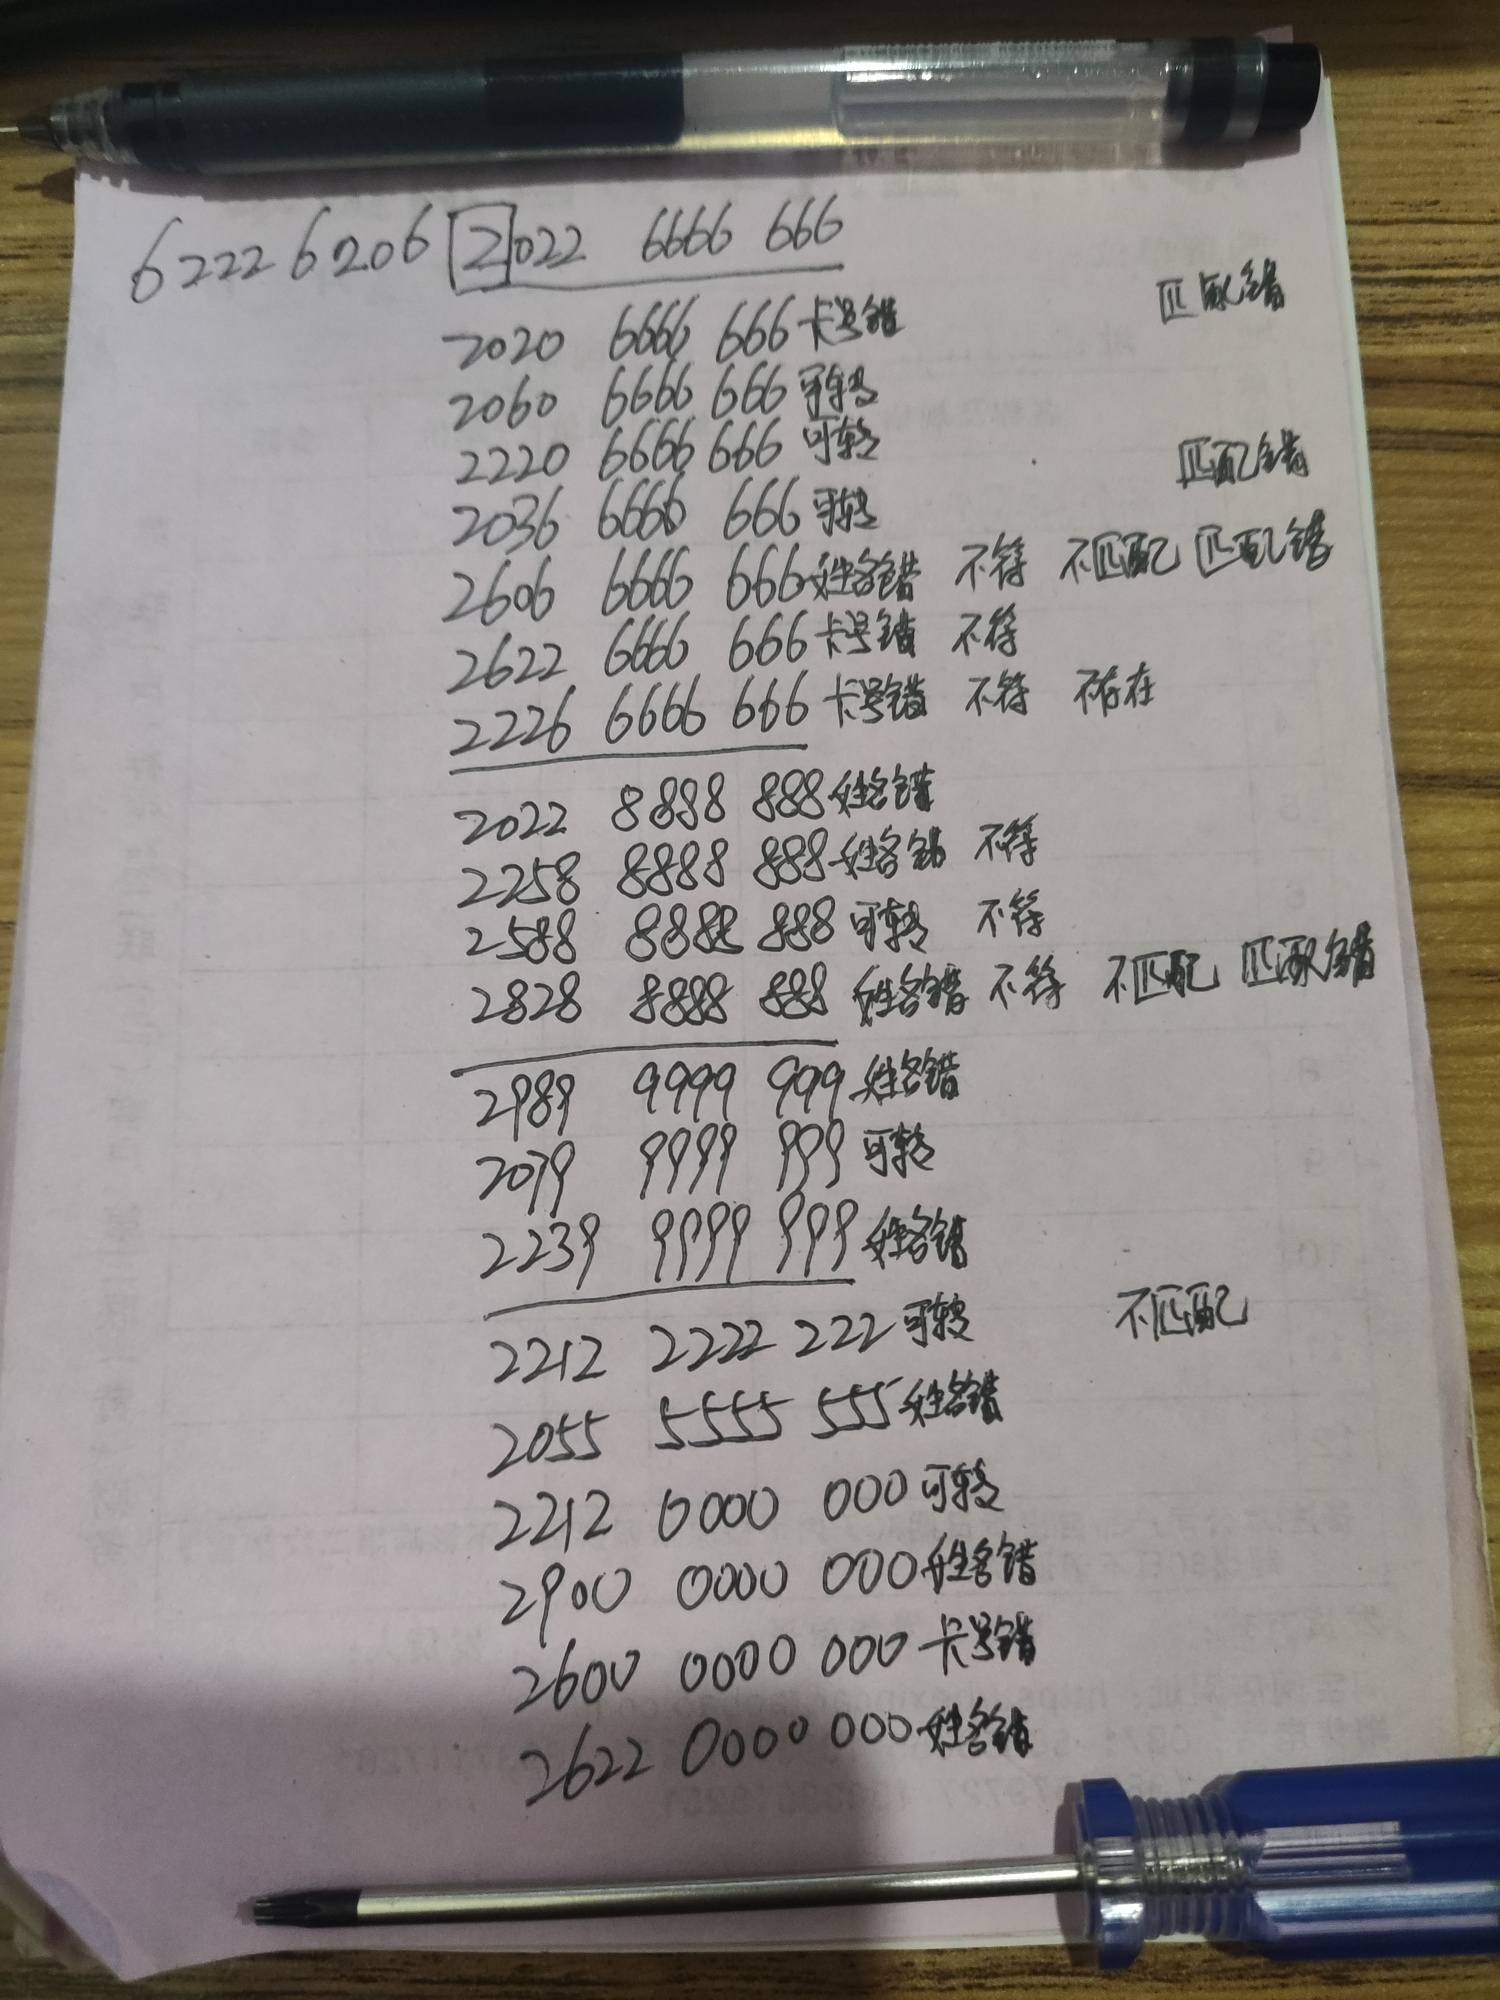 6222 6206 2022 6666 666
匹配错
2020 6666 666 卡号错
2060 6666 666 可转
2220 6666 666 可转
匹配错
2036 6666 666 可转
2606 6666 666 姓名错 不符 不匹配 匹配错
2622 6666 666 卡号错 不符
2226 6666 666 卡号错 不符 不存在
2022 8888 888 姓名错
2258 8888 888 姓名错 不符
2588 8888 888 可转 不符
2828 8888 888 姓名错 不符 不匹配 匹配错
2989 9999 999 姓名错
2079 9999 999 可转
2239 9999 999 姓名错
2212 2222 222 可转 不匹配
2055 5555 555 姓名错
2212 0000 000 可转
2900 0000 000 姓名错
2600 0000 000 卡号错
2622 0000 000 姓名错